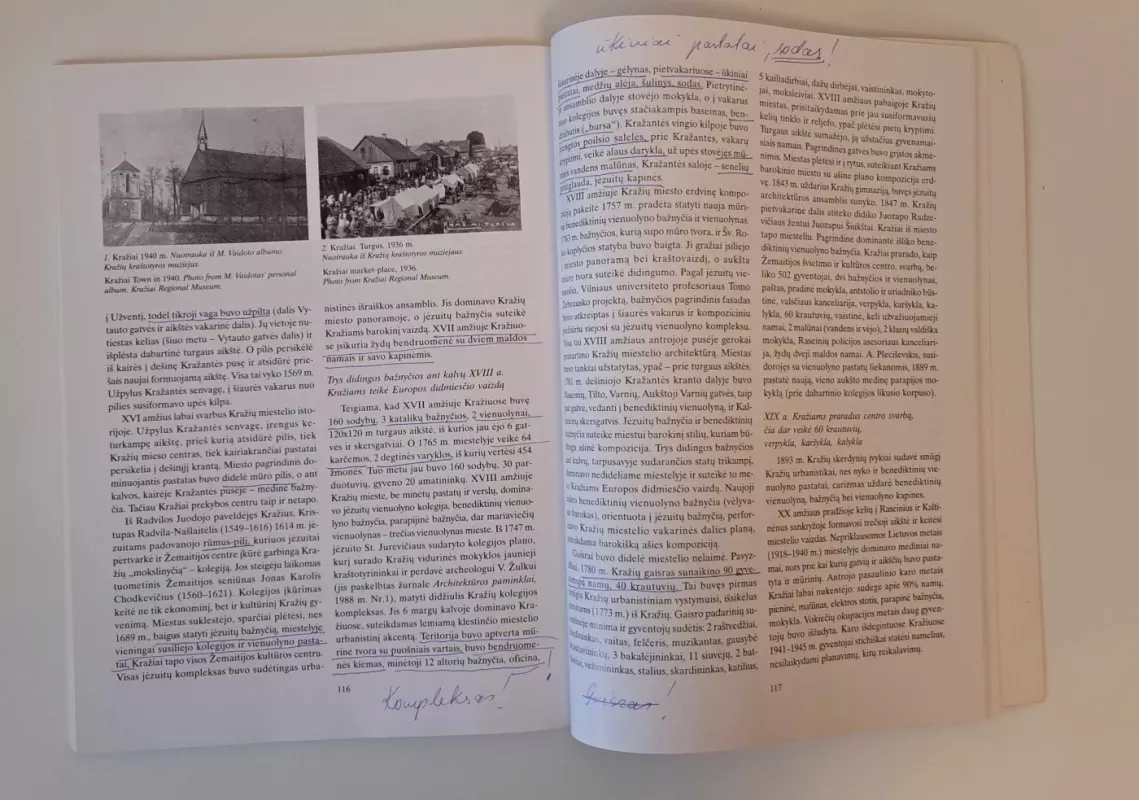 1. Kražiai 1940 m. Nuotrauka iš M. Vaidoto albumo.
Kražių kraštotyros muziejus.
Kražiai Town in 1940. Photo from M. Vaidotas' personal
album. Kražiai Regional Museum.
2. Kražiai. Turgus, 1936 m.
Nuotrauka iš Kražių kraštotyros muziejaus.
Kražiai market-place, 1936.
Photo from Kražiai Regional Museum.
į Užventį, todėl tikroji vaga buvo užpilta (dalis Vy-
tauto gatvės ir aikštės vakarinė dalis). Jų vietoje nu-
tiestas kelias (šiuo metu – Vytauto gatvės dalis) ir
išplėsta dabartinė turgaus aikštė. O pilis persikėlė
iš kairės į dešinę Kražantės pusę ir atsidūrė prie-
šais naujai formuojamą aikštę. Visa tai vyko 1569 m.
Užpylus Kražantės senvagę, į šiaurės vakarus nuo
pilies susiformavo upės kilpa.
XVI amžius labai svarbus Kražių miestelio isto-
rijoje. Užpylus Kražantės senvagę, įrengus ke-
turkampę aikštę, prieš kurią atsidūrė pilis, tiek
Kražių mieso centras, tiek kairiakranciai pastatai
persikelia į dešinįjį krantą. Miesto pagrindinis do-
minuojantis pastatas buvo didelė mūro pilis, o ant
kalvos, kairėje Kražantės pusėje – medinė bažny-
čia. Tačiau Kražiai prekybos centru taip ir netapo.
Iš Radvilos Juodojo paveldėjęs Kražius, Kris-
tupas Radvila-Našlaitėlis (1549–1616) 1614 m. jė-
zuitams padovanojo rūmus-pilį, kuriuos jėzuitai
pertvarkė ir Žemaitijos centre įkūrė garbingą Kra-
žių „mokslinyčią“ – kolegiją. Jos steigėju laikomas
tuometinis Žemaitijos seniūnas Jonas Karolis
Chodkevičius (1560–1621). Kolegijos įkūrimas
keitė ne tik ekonominį, bet ir kultūrinį Kražių gy-
venimą. Miestas suklestėjo, sparčiai plėtėsi, nes
1689 m., baigus statyti jėzuitų bažnyčią, miestelyje
vieningai susiliejo kolegijos ir vienuolyno pasta-
tai. Kražiai tapo visos Žemaitijos kultūros centru.
Visas jėzuitų kompleksas buvo sudėtingas urba-
nistinės išraiškos ansamblis. Jis dominavo Kražių
miesto panoramoje, o jėzuitų bažnyčia suteikė
Kražiams barokinį vaizdą. XVII amžiuje Kražiuo-
se įsikuria žydų bendruomenė su dviem maldos
namais ir savo kapinėmis.
Trys didingos bažnyčios ant kalvų XVIII a.
Kražiams teikė Europos didmiesčio vaizdą
Teigiama, kad XVII amžiuje Kražiuose buvę
160 sodybų, 3 katalikų bažnyčios, 2 vienuolynai,
120x120 m turgaus aikštė, iš kurios jau ėjo 6 gat-
vės ir skersgatviai. O 1765 m. miestelyje veikė 64
karčemos, 2 degtinės varyklos, iš kurių vertėsi 454
žmonės. Tuo metu jau buvo 160 sodybų, 30 par-
duotuvių, gyveno 20 amatininkų. XVIII amžiuje
Kražių mieste, be minėtų pastatų ir verslų, domina-
vo jėzuitų vienuolyno kolegija, benediktinių vienuo-
lyno bažnyčia, parapijinė bažnyčia, dar mariaviečių
vienuolynas – trečias vienuolynas mieste. Iš 1747 m.
jėzuito St. Jurevičiaus sudaryto kolegijos plano,
kurį surado Kražių vidurinės mokyklos jaunieji
kraštotyrininkai ir perdavė archeologui V. Žulkui
(jis paskelbtas žurnale Architektūros paminklai,
1988 m. Nr.1), matyti didžiulis Kražių kolegijos
kompleksas. Jis 6 margų kalvoje dominavo Kra-
žiuose, suteikdamas lemiamą klestinčio miestelio
urbanistinį akcentą. Teritorija buvo aptverta mū-
rine tvora su puošniais vartais, buvo bendruome-
nės kiemas, minėtoji 12 altorių bažnyčia, oficina,
116
Kompleksas!
ūkiniai pastatai, sodas!
šiaurinėje dalyje – gėlynas, pietvakariuose – ūkiniai
pastatai, medžių alėja, šulinys, sodas. Pietrytinė-
ansamblio dalyje stovėjo mokykla, o į vakarus
kolegijos buvęs stačiakampis baseinas, ben-
(„bursa“). Kražantės vingio kilpoje buvo
įrengtos poilsio salelės, prie Kražantės, vakarų
veikė alaus darykla, už upės stovėjęs mū-
vandens malūnas, Kražantės saloje – senelių
prieglauda, jėzuitų kapinės.
XVIII amžiuje Kražių miesto erdvinę kompo-
pakeitė 1757 m. pradėta statyti nauja mūri-
benediktinių vienuolyno bažnyčia ir vienuolynas.
1763 m. bažnyčios, kurią supo mūro tvora, ir Šv. Ro-
koplyčios statyba buvo baigta. Ji gražiai įsiliejo
miesto panoramą bei kraštovaizdį, o aukšta
tvora suteikė didingumo. Pagal jėzuitų vie-
Vilniaus universiteto profesoriaus Tomo
Žebrausko projektą, bažnyčios pagrindinis fasadas
buvo atkreiptas į šiaurės vakarus ir kompoziciniu
požiūriu siejosi su jėzuitų vienuolynu kompleksu.
Visa tai XVIII amžiaus antrojoje pusėje gerokai
praturtino Kražių miestelio architektūrą. Miestas
buvo tankiai užstatytas, ypač – prie turgaus aikštės.
dešiniojo Kražantės kranto dalyje buvo
Tilto, Varnių, Aukštoji Varnių gatvės, taip
pat gatvė, vedanti į benediktinių vienuolyną, ir Kal-
skersgatvis. Jėzuitų bažnyčia ir benediktinių
bažnyčia suteikė miestui barokinį stilių, kuriam bū-
dinga ašinė kompozicija. Trys didingos bažnyčios
ant kalvų, tarpusavyje sudarančios statų trikampį,
dominavo nedideliame miestelyje ir suteikė to me-
to Kražiams Europos didmiesčio vaizdą. Naujoji
benediktinių vienuolyno bažnyčia (vėlyva-
barokas), orientuota į jėzuitų bažnyčią, perfor-
Kražių miestelio vakarinės dalies planą,
suteikdama barokišką ašies kompoziciją.
Gaisrai buvo didelė miestelio nelaimė. Pavyz-
džiui, 1780 m. Kražių gaisras sunaikino 90 gyve-
namųjų namų, 40 krautuvių. Tai buvęs pirmas
Kražių urbanistiniam vystymuisi, išsikėlus
jėzuitams (1773 m.) iš Kražių. Gaisro padarinių su-
minima ir gyventojų sudėtis: 2 raštvedžiai,
vaitas, felčeris, muzikantas, gausybė
3 bakalėjininkai, 11 siuvėjų, 2 bat-
vežimininkas, stalius, skardininkas, katilius,
5 kailiadirbiai, dažų dirbėjai, vaistininkas, mokyto-
jai, moksleiviai. XVIII amžiaus pabaigoje Kražių
miestas, prisitaikydamas prie jau susiformavusių
kelių tinklo ir reljefo, ypač plėtėsi pietų kryptimi.
Turgaus aikštė sumažėjo, ją užstačius gyvenamai-
siais namais. Pagrindinės gatvės buvo grįstos akme-
nimis. Miestas plėtėsi ir į rytus, suteikiant Kražiams
barokinio miesto su ašine plano kompozicija erd-
vę. 1843 m. uždarius Kražių gimnaziją, buvęs jėzuitų
architektūros ansamblis sunyko. 1847 m. Kražių
pietvakarinė dalis atiteko didiko Juozapo Radze-
vičiaus žentui Juozapui Šiukštai. Kražiai iš miesto
tapo miesteliu. Pagrindine dominante išliko bene-
diktinių vienuolyno bažnyčia. Kražiai prarado, kaip
Žemaitijos švietimo ir kultūros centro, svarbą, be-
liko 502 gyventojai, dvi bažnyčios ir vienuolynas,
paštas, pradinė mokykla, antstolio ir uriadniko būs-
tinė, valsčiaus kanceliarija, verpykla, karšykla, ka-
lykla, 60 krautuvių, vaistinė, keli užvažiuojamieji
namai, 2 malūnai (vandens ir vėjo), 2 klasių valdiška
mokykla, Raseinių policijos asesoriaus kanceliari-
ja, žydų dveji maldos namai. A. Plesiševskis, susi-
dorojęs su vienuolyno pastatų liekanomis, 1889 m.
pastatė naują, vieno aukšto medinę parapijos mo-
kyklą (prie dabartinio kolegijos likusio korpuso).
XIX a. Kražiams praradus centro svarbą,
čia dar veikė 60 krautuvių,
verpykla, karšykla, kalykla
1893 m. Kražių skerdynių įvykiai sudavė smūgį
Kražių urbanistikai, nes nyko ir benediktinių vie-
nuolyno pastatai, carizmas uždarė benediktinių
vienuolyną, bažnyčią bei vienuolyno kapines.
XX amžiaus pradžioje kelių į Raseinius ir Kalti-
nėnus sankryžoje formavosi trečioji aikštė ir keitėsi
miestelio vaizdas. Nepriklausomos Lietuvos metais
(1918-1940 m.) miestelyje dominavo mediniai na-
mai, nors prie kai kurių gatvių ir aikščių buvo pasta-
tyta ir mūrinių. Antrojo pasaulinio karo metais
Kražiai labai nukentėjo: sudegė apie 90% namų,
pieninė, malūnas, elektros stotis, parapinė bažnyčia,
mokykla. Vokiečių okupacijos metais daug gyven-
tojų buvo išžudyta. Karo išdegintuose Kražiuose
1941-1945 m. gyventojai stichiškai statėsi namelius,
nesilaikydami planavimo, kitų reikalavimų.
117